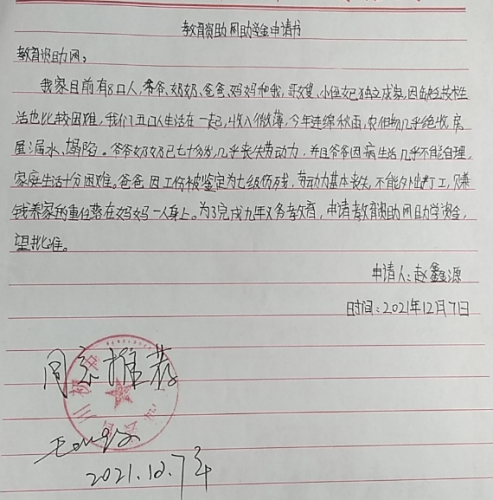 教育资助网助学金申请书
教育资助网：
我家目前有8口人，爷爷、奶奶、爸爸、妈妈和我，哥嫂、小侄女已独立成家，因缺乏技术生
活也比较困难，我们五口人生活在一起，收入微薄，今年连绵秋雨，农作物几乎绝收，房
屋漏水、塌陷。爷爷奶奶已七十多岁，几乎丧失劳动力，并且爷爷因病生活几乎不能自理，
家庭生活十分困难。爸爸因工伤被鉴定为七级伤残，劳动力基本丧失，不能外出打工，赚
钱养家的重任落在妈妈一人身上。为了完成九年义务教育，申请教育资助网助学资金，
望批准。
申请人：赵鑫源
时间：2021年12月7日
同意推荐
2021.12.7